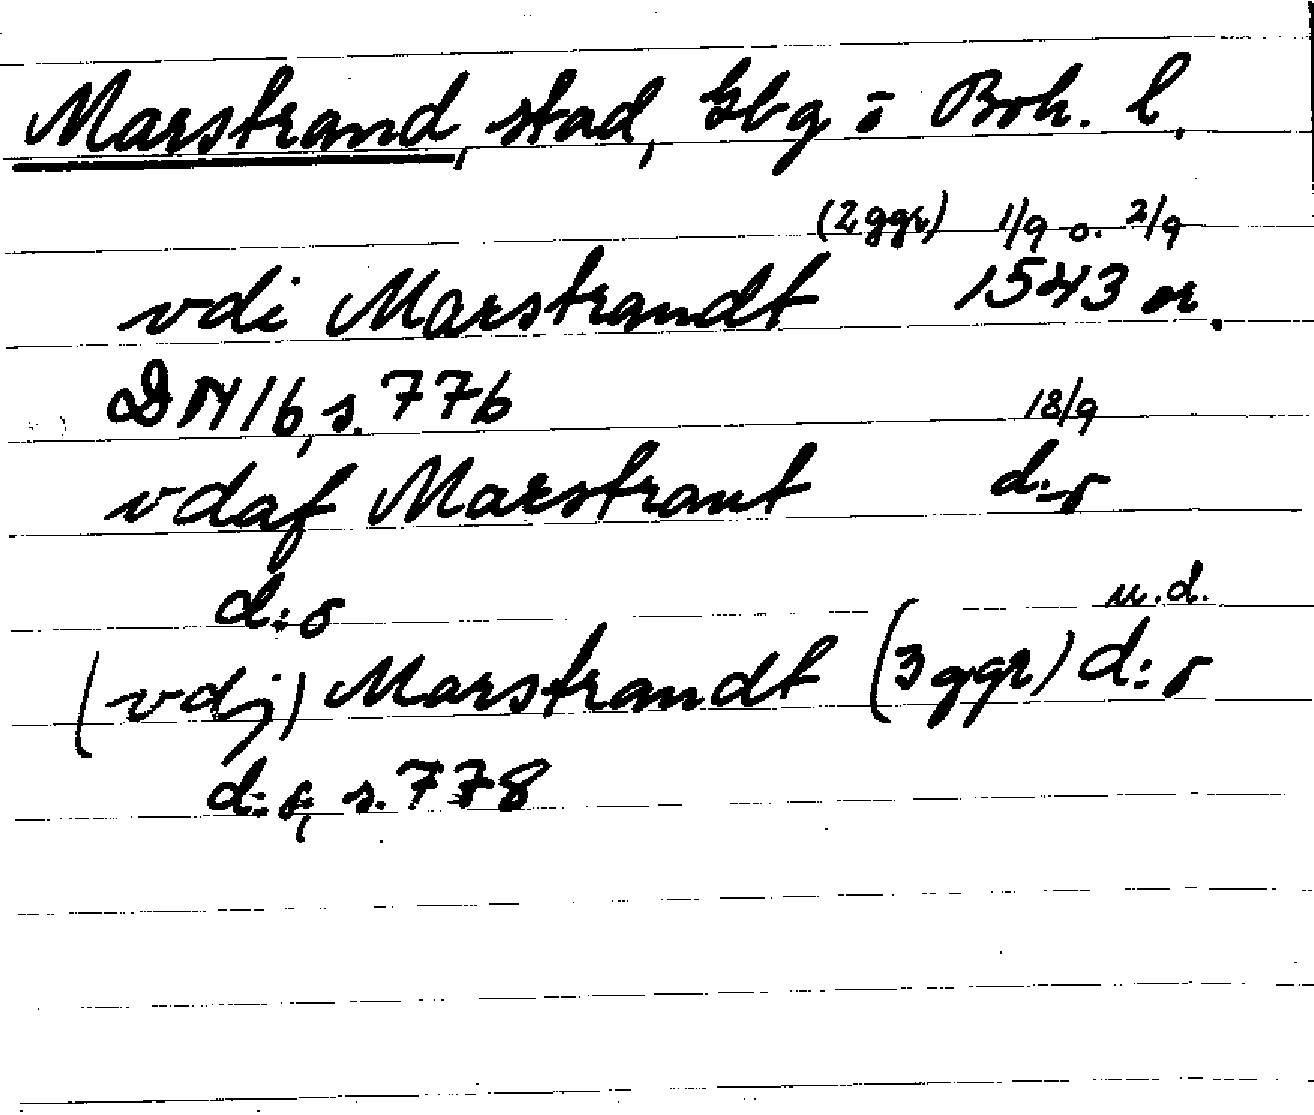 Marstrand, stad, Gbg o Boh. l.
(2 ggr) 1/9 o. 2/9
vdi Marstrandt 1543 or.
DN 16, s. 776
18/9
vdaf Marstrant d:o
d:o
u.d.
(vdj) Marstrandt (3 ggr) d:o
d:o, s. 778